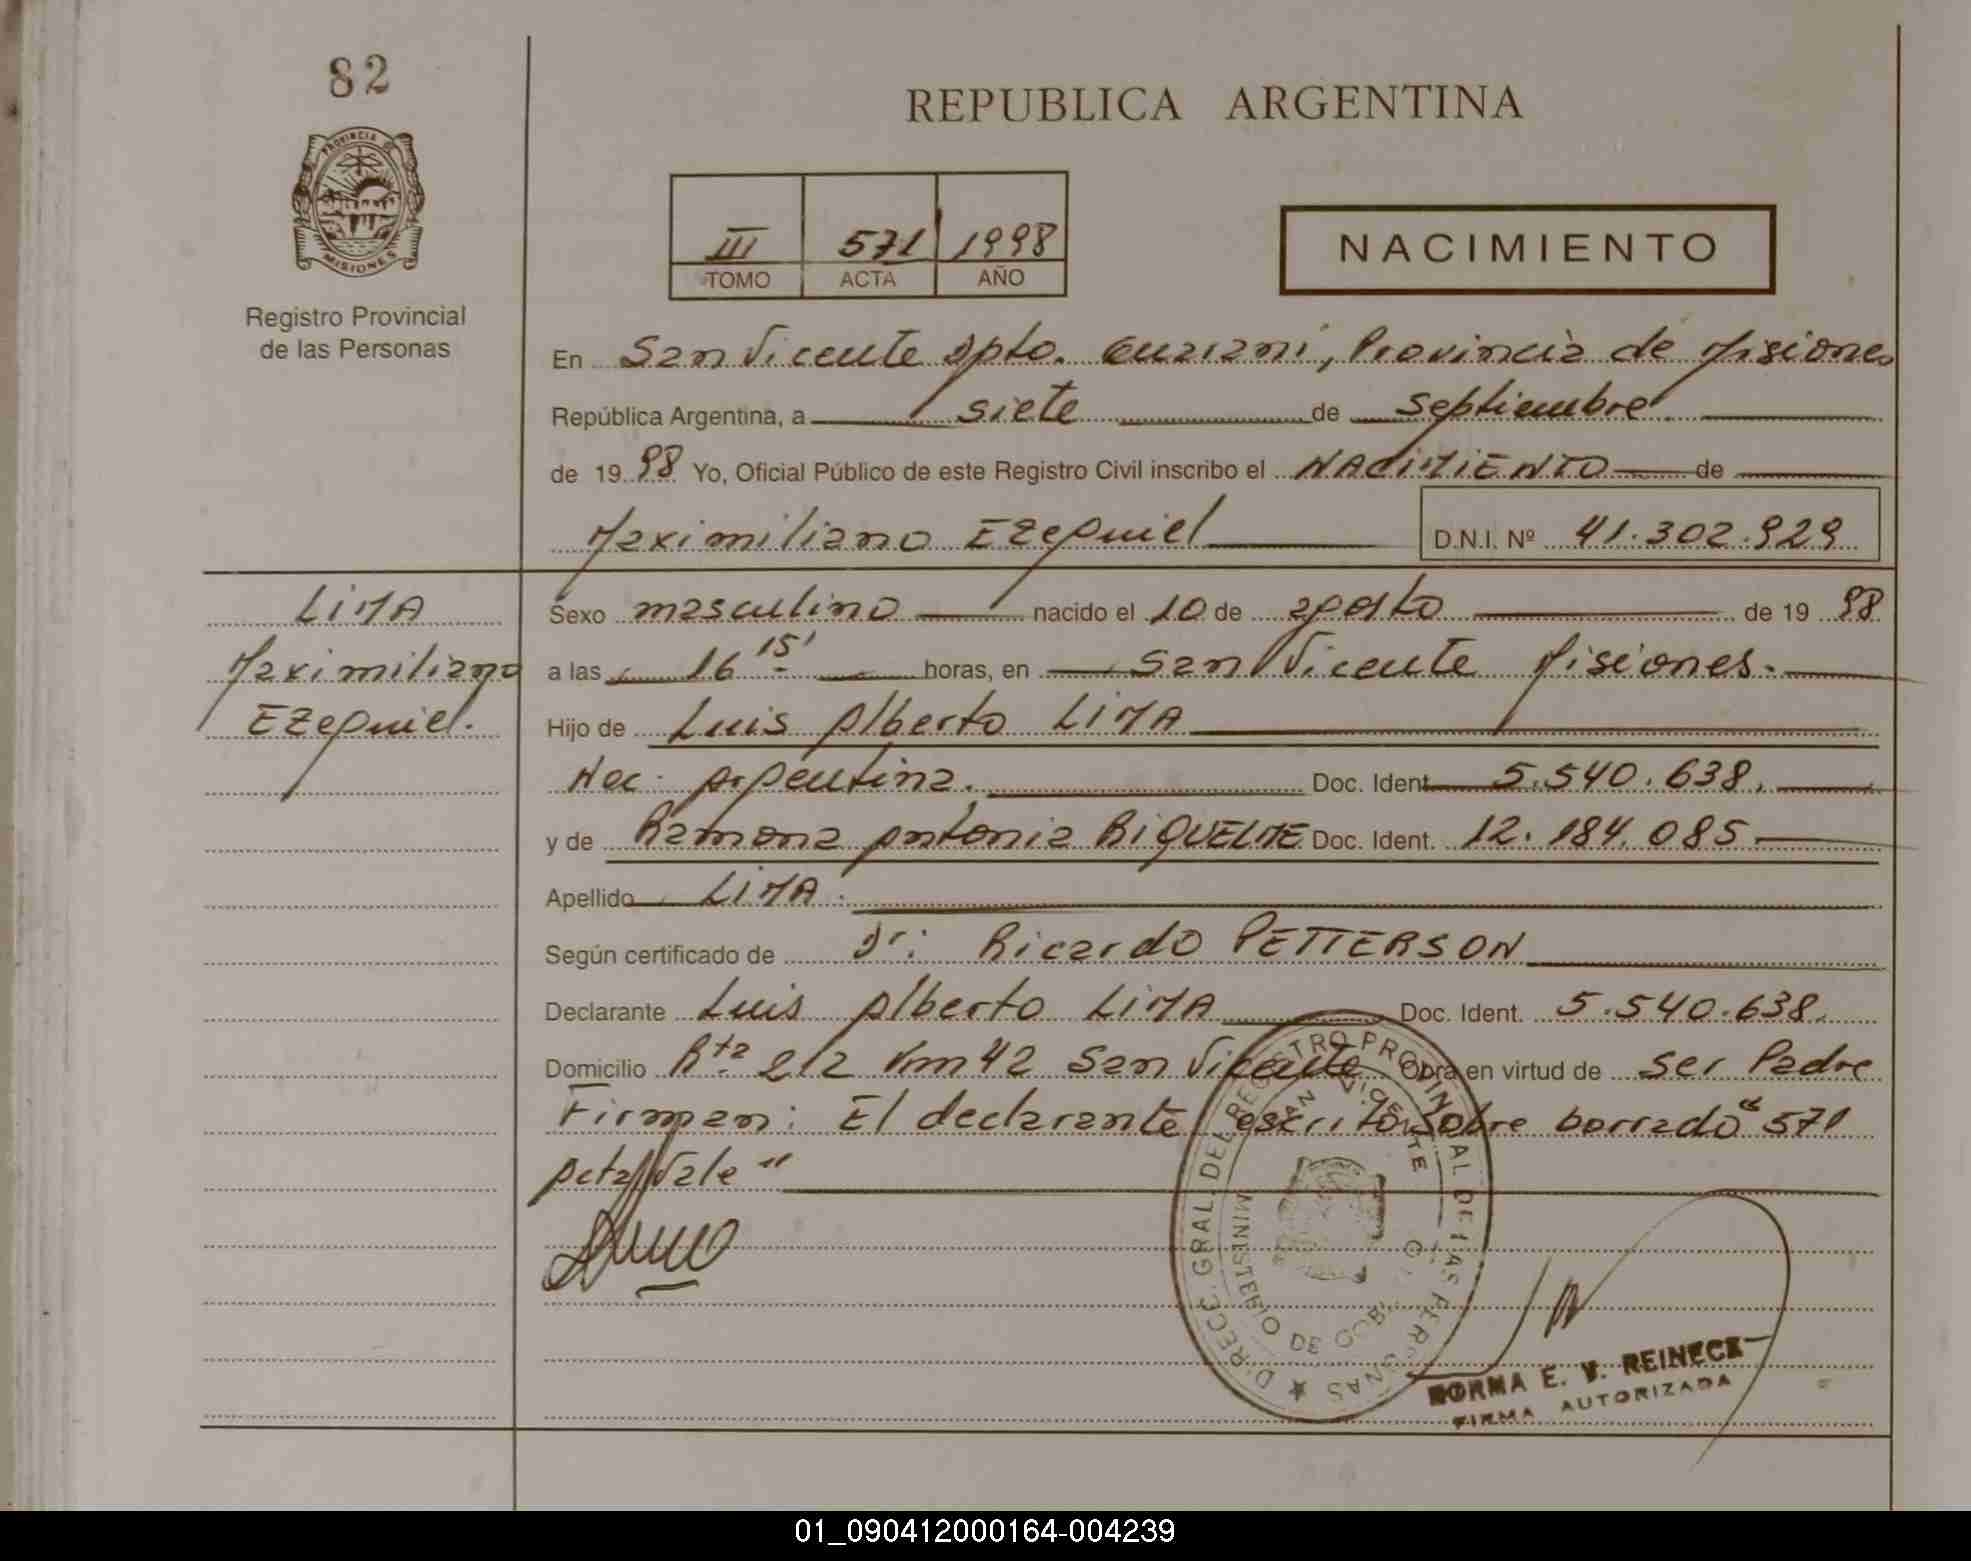 82
REPUBLICA ARGENTINA
PROVINCIA DE
MISIONES
Registro Provincial
de las Personas
III 571 1998
TOMO ACTA AÑO
NACIMIENTO
En San Vicente Dpto. Guarani, Provincia de Misiones
República Argentina, a siete de septiembre
de 1998 Yo, Oficial Público de este Registro Civil inscribo el NACIMIENTO de
Maximiliano Ezequiel D.N.I. Nº 41.302.929
LIMA
Maximiliano
Ezequiel.
Sexo masculino nacido el 10 de agosto de 1998
a las 16 15' horas, en San Vicente Misiones.
Hijo de Luis Alberto LIMA
Nac. Argentina. Doc. Ident 5.540.638.
y de Ramona Antonia RIQUELME Doc. Ident. 12.184.085
Apellido LIMA.
Según certificado de Dr: Ricardo PETTERSON
Declarante Luis Alberto LIMA Doc. Ident. 5.540.638.
Domicilio Rta 212 Km 42 San Vicente Obra en virtud de ser Padre
Firman: El declarante escrito sobre borrado "571
Acta Vale"
DIRECC. GRAL. DEL REGISTRO PROVINCIAL DE LAS PERSONAS
SAN VICENTE
MINISTERIO DE GOB.
NORMA E. V. REINECK
FIRMA AUTORIZADA
01_090412000164-004239